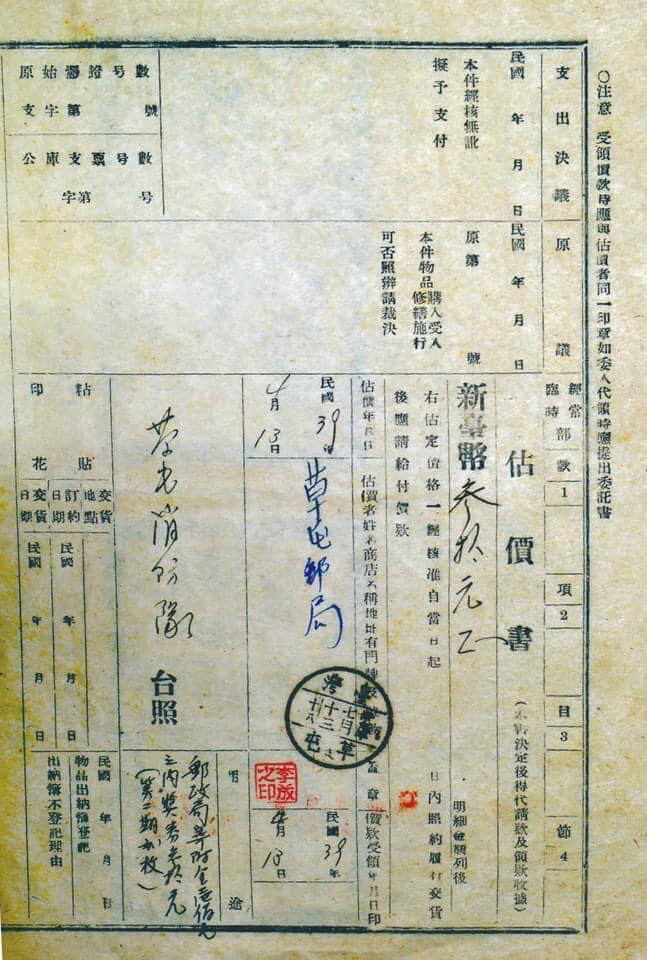 ○注意 受領價款時應與估價者同一印章如委人代領時應提出委託書
支出決議
民國 年 月 日
本件經核無訛
擬予支付
原始憑證号數
字第 號
支票号數
公庫支字第 号
原議
民國 年 月 日
原第 號
本件物品購入受入
修繕施行
可否照辦請裁決
經常
臨時
部
款1
項2
目3
節4
估價書
(本書決定後得代請款及領款收據)
新臺幣 参拾元正
明細金額列後
右估定價格一經核准自當日起 日內照約履行交貨
後應請給付價款
估價年月日
估價者姓名商店名稱地址有門牌
蓋章
價款受領年月日印
民國39年
4月13日
草屯郵局
臺灣
草屯
李成
之印
民國39年
4月13日
草屯消防隊 台照
用途
郵政局寄附金
之內獎券参拾元
粘貼
印花
交貨地點
訂約日期
交貨日期
民國 年 月 日
民國 年 月 日
民國 年 月 日
物品出納簿登記
出納簿不登記理由